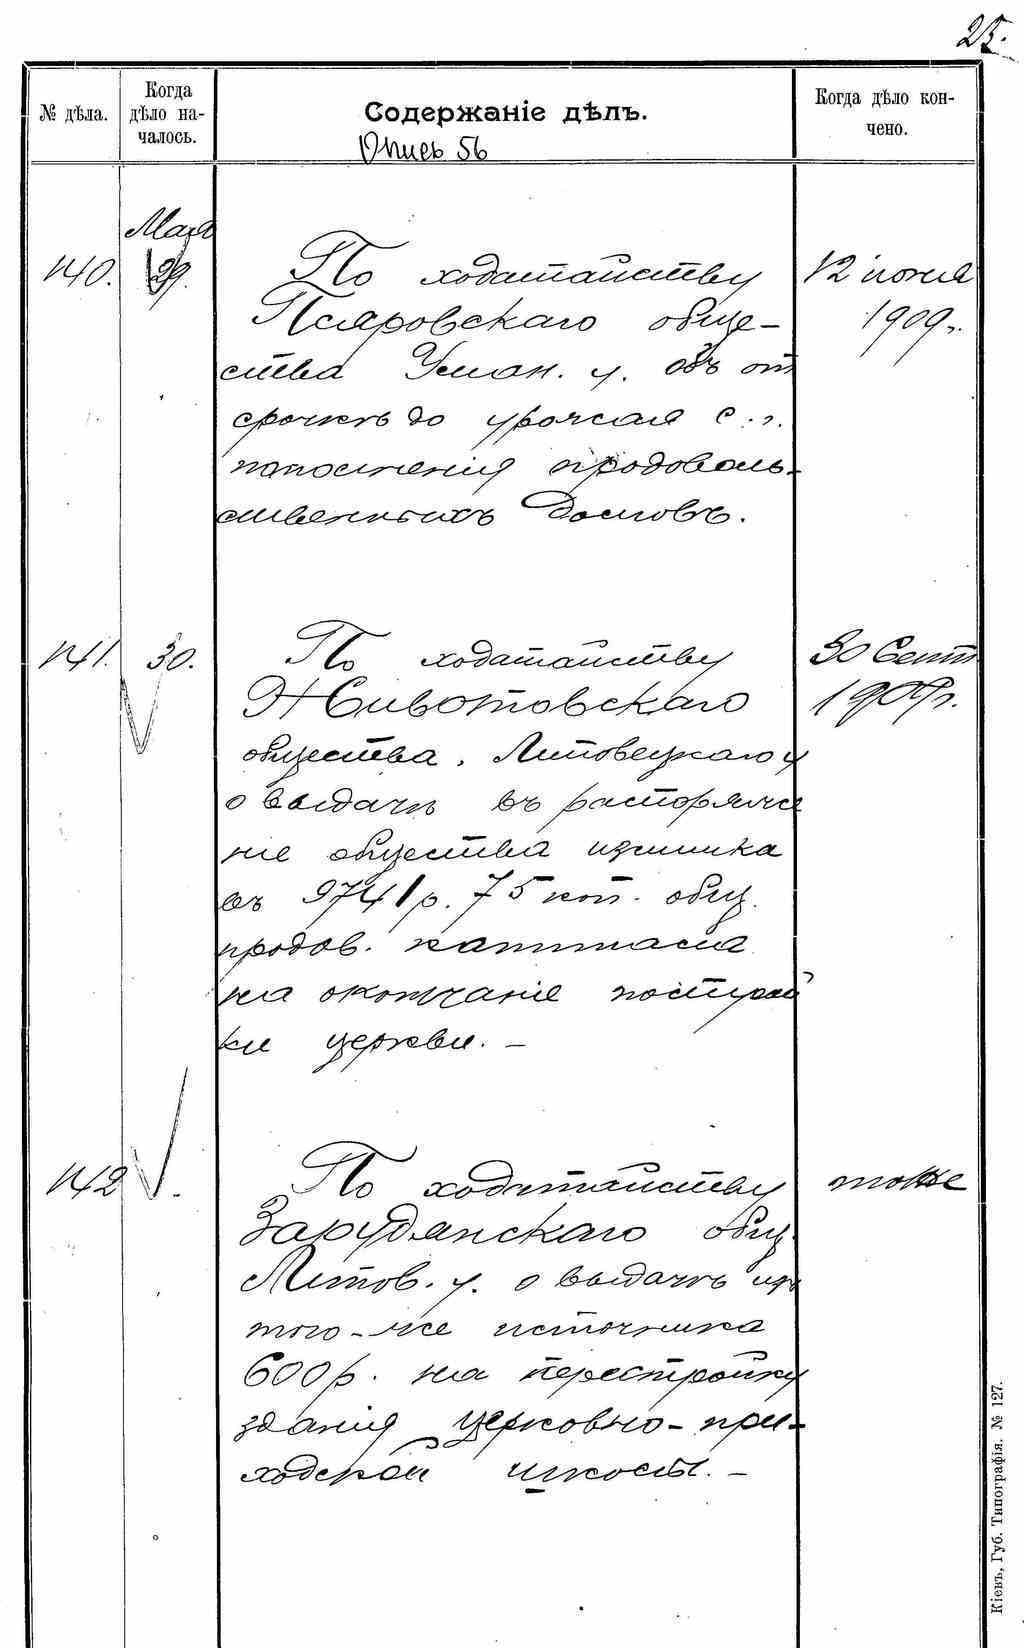 25.
№ дѣла.
Когда
дѣло на-
чалось.
Содержаніе дѣлъ.
Когда дѣло кон-
чено.
Опись 56
Мая
140.
29.
По ходатайству
Псяровскаго обще-
ства Уман. у. объ от
срочкѣ до урожая с. г.
пополненія продоволь-
ственныхъ долговъ.
12 іюня
1909 г.
141.
30.
По ходатайству
Животовскаго
общества, Липовецкаго у
о выдачѣ въ распоряже
ніе общества излишка
въ 9741 р. 75 коп. общ.
продов. капитала
на окончаніе построй
ки церкви. –
30 Сент
1909 г.
142
По ходатайству
Зарудянскаго общ.
Липов. у. о выдачѣ изъ
того-же источника
600 р. на перестройку
зданія церковно-при-
ходской школы. –
тоже
Кіевъ, Губ. Типографія. № 127.